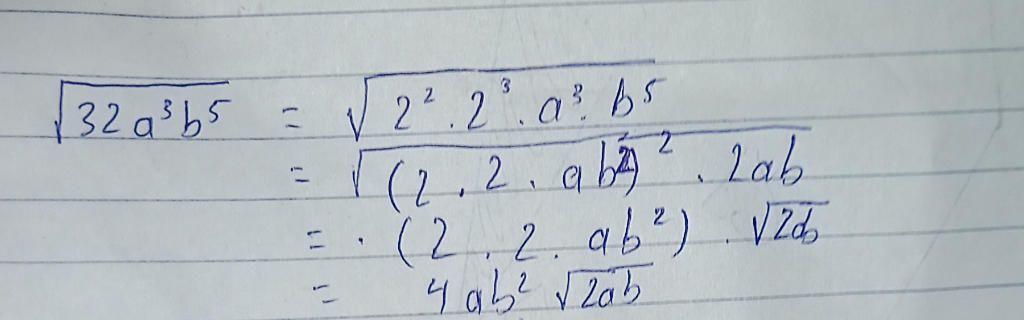 √(32a³b⁵) = √(2² · 2³ · a³ · b⁵)
= √((2 · 2 · ab²)² · 2ab)
= · (2 · 2 · ab²) · √(2ab)
= 4ab² √(2ab)